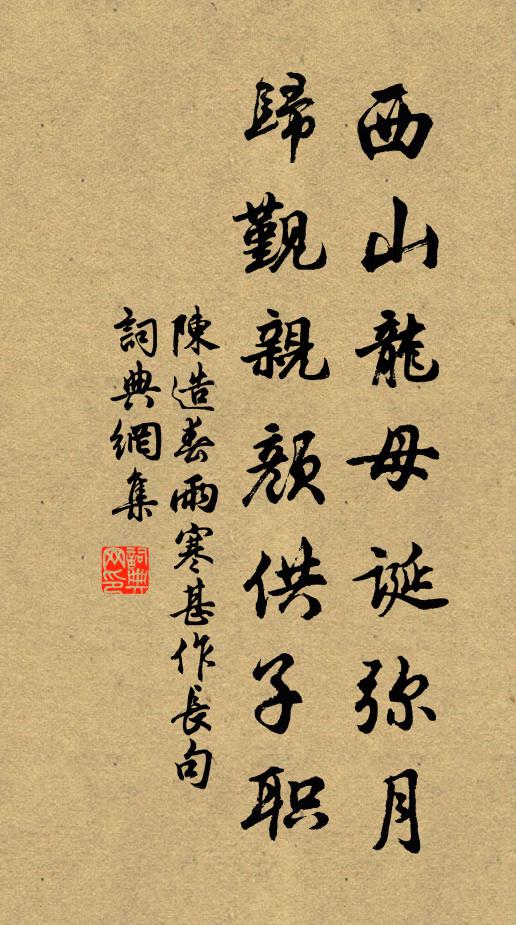 西山龍母誕弥月
歸覲親顏供子职
陳造春雨寒甚作長句
詞典網集
詞典網印